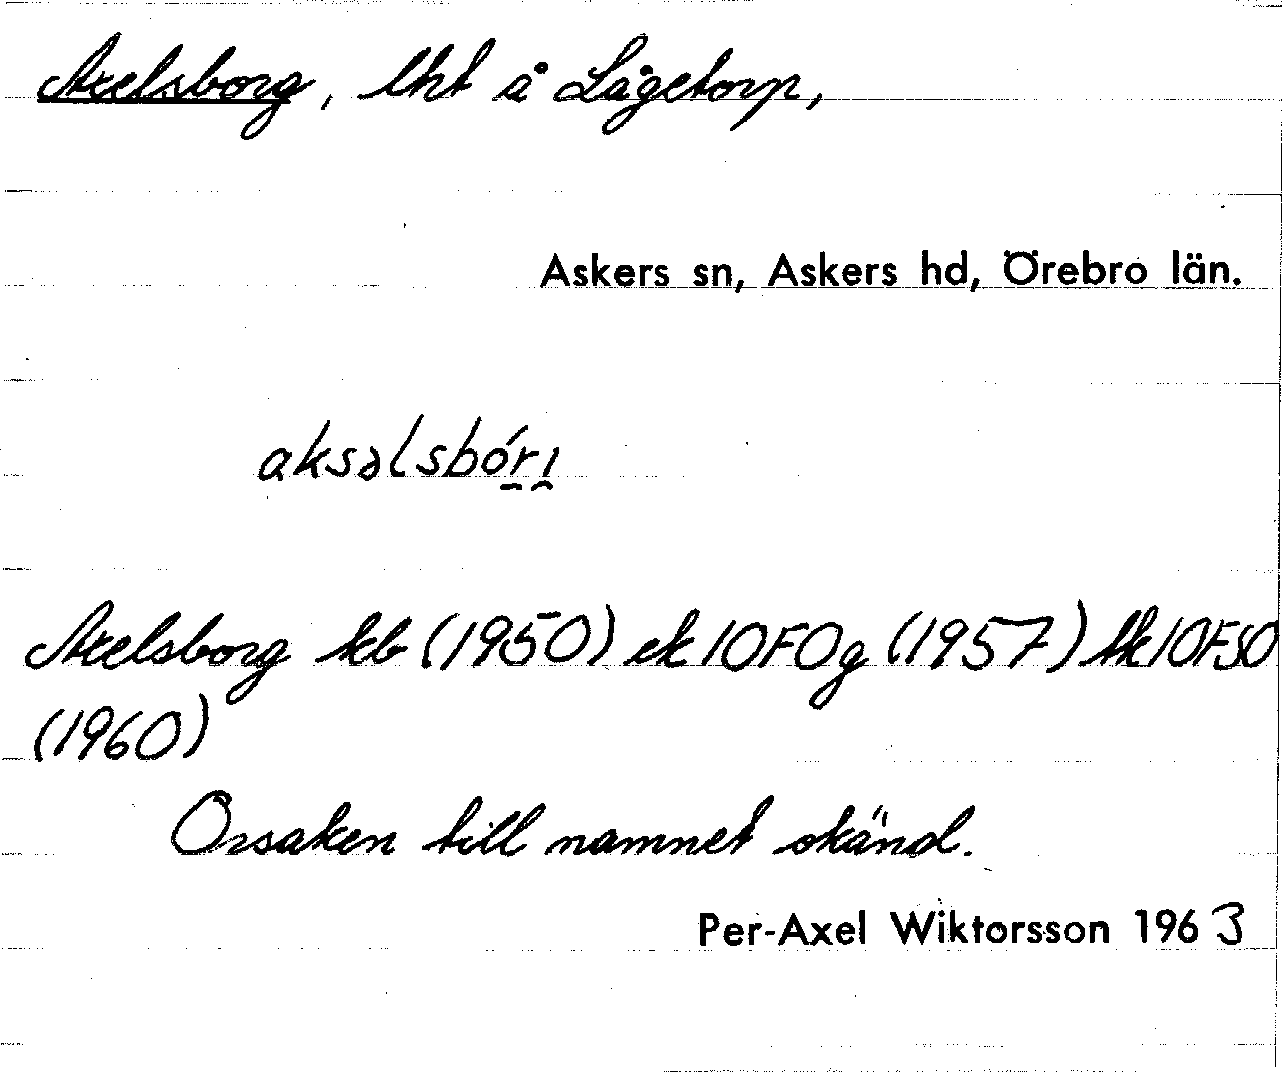 Axelsborg, lht å Lågetorp,
Askers sn, Askers hd, Örebro län.
aksəlsbórı
Axelsborg kb (1950) ek 10F0g (1957) tk 10F50
(1960)
Orsaken till namnet okänd.
Per-Axel Wiktorsson 1963